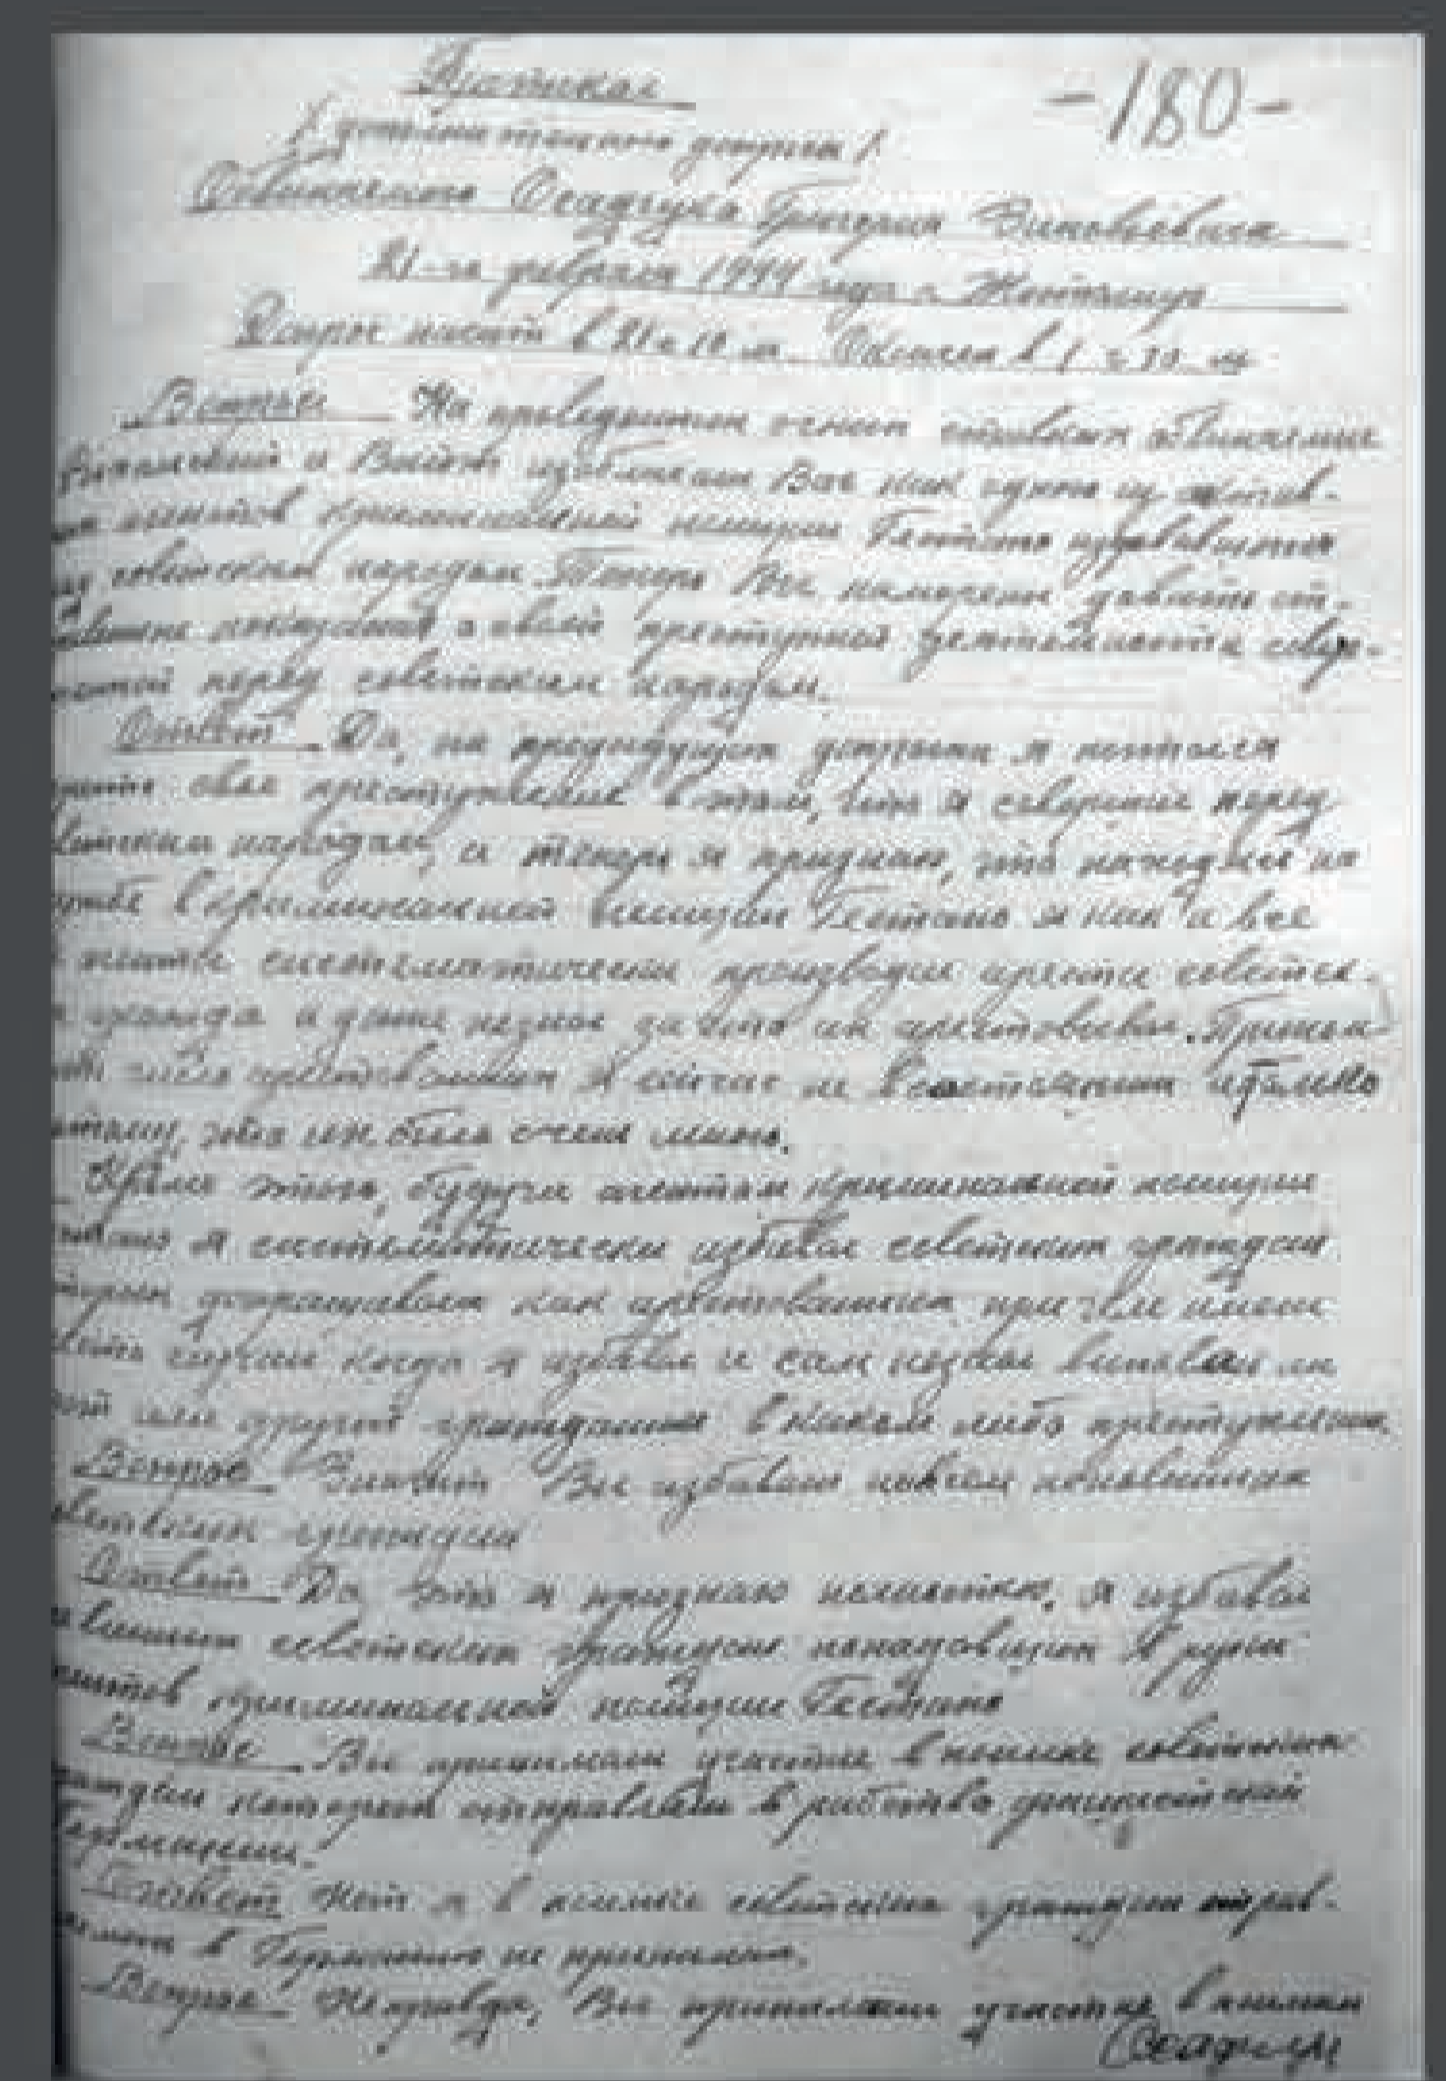 Протокол
-180-
/ дополнительного допроса /
Обвиняемого Осадчука Григория Зиновьевича
21-го февраля 1944 года г. Житомир
Допрос начат в 21 ч 10 м. Окончен в 1 ч 30 м
Вопрос На проведенных очных ставках обвиняемые
и изобличали Вас как одного из актив-
ых агентов криминальной полиции Гестапо издевавшегося
над советским народом. Теперь Вы намерены давать от-
показания о своей преступной деятельности совер-
перед советским народом.
Ответ. Да, на предыдущих допросах я пытался
свое преступление в том, что я совершил перед
советским народом, и теперь я признаю, что находясь на
службе в криминальной полиции Гестапо я как и все
агенты систематически производил аресты советск-
граждан и даже не знал за что их арестовывал.
число арестованных я сейчас не в состоянии только
потому, что их было очень много.
Кроме того, будучи агентом криминальной полиции
Гестапо я систематически избивал советских граждан
которых допрашивал как арестованных при чем имели
место случаи когда я избивал и сам не знал виноват ли
тот или другой гражданин в каком либо преступлении.
Вопрос Значит Вы избивали совсем неповинных
советских граждан
Ответ Да это я признаю полностью. Я избивал
советских граждан попадавших в руки
агентов криминальной полиции Гестапо
Вопрос. Вы принимали участие в поимке советских
граждан которых отправляли в рабство фашистской
Германии.
Ответ Нет я в поимке советских граждан отправ-
в Германию не принимал.
Вопрос Неправда, Вы принимали участие в поимки
Осадчук